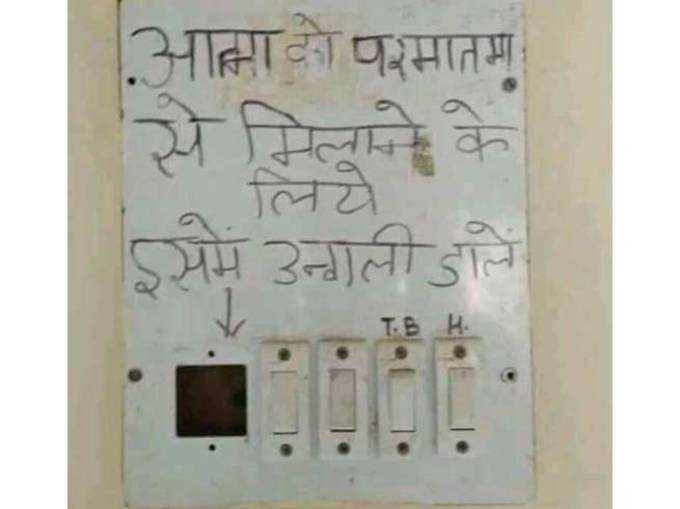 आत्मा को परमातमा
से मिलाने के
लिये
इसमें उन्गली डालें
T.B H.